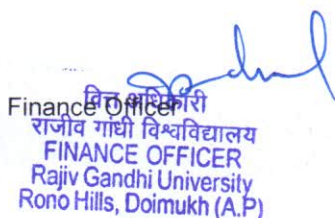 Finance Officer
वित्त अधिकारी
राजीव गांधी विश्वविद्यालय
FINANCE OFFICER
Rajiv Gandhi University
Rono Hills, Doimukh (A.P)